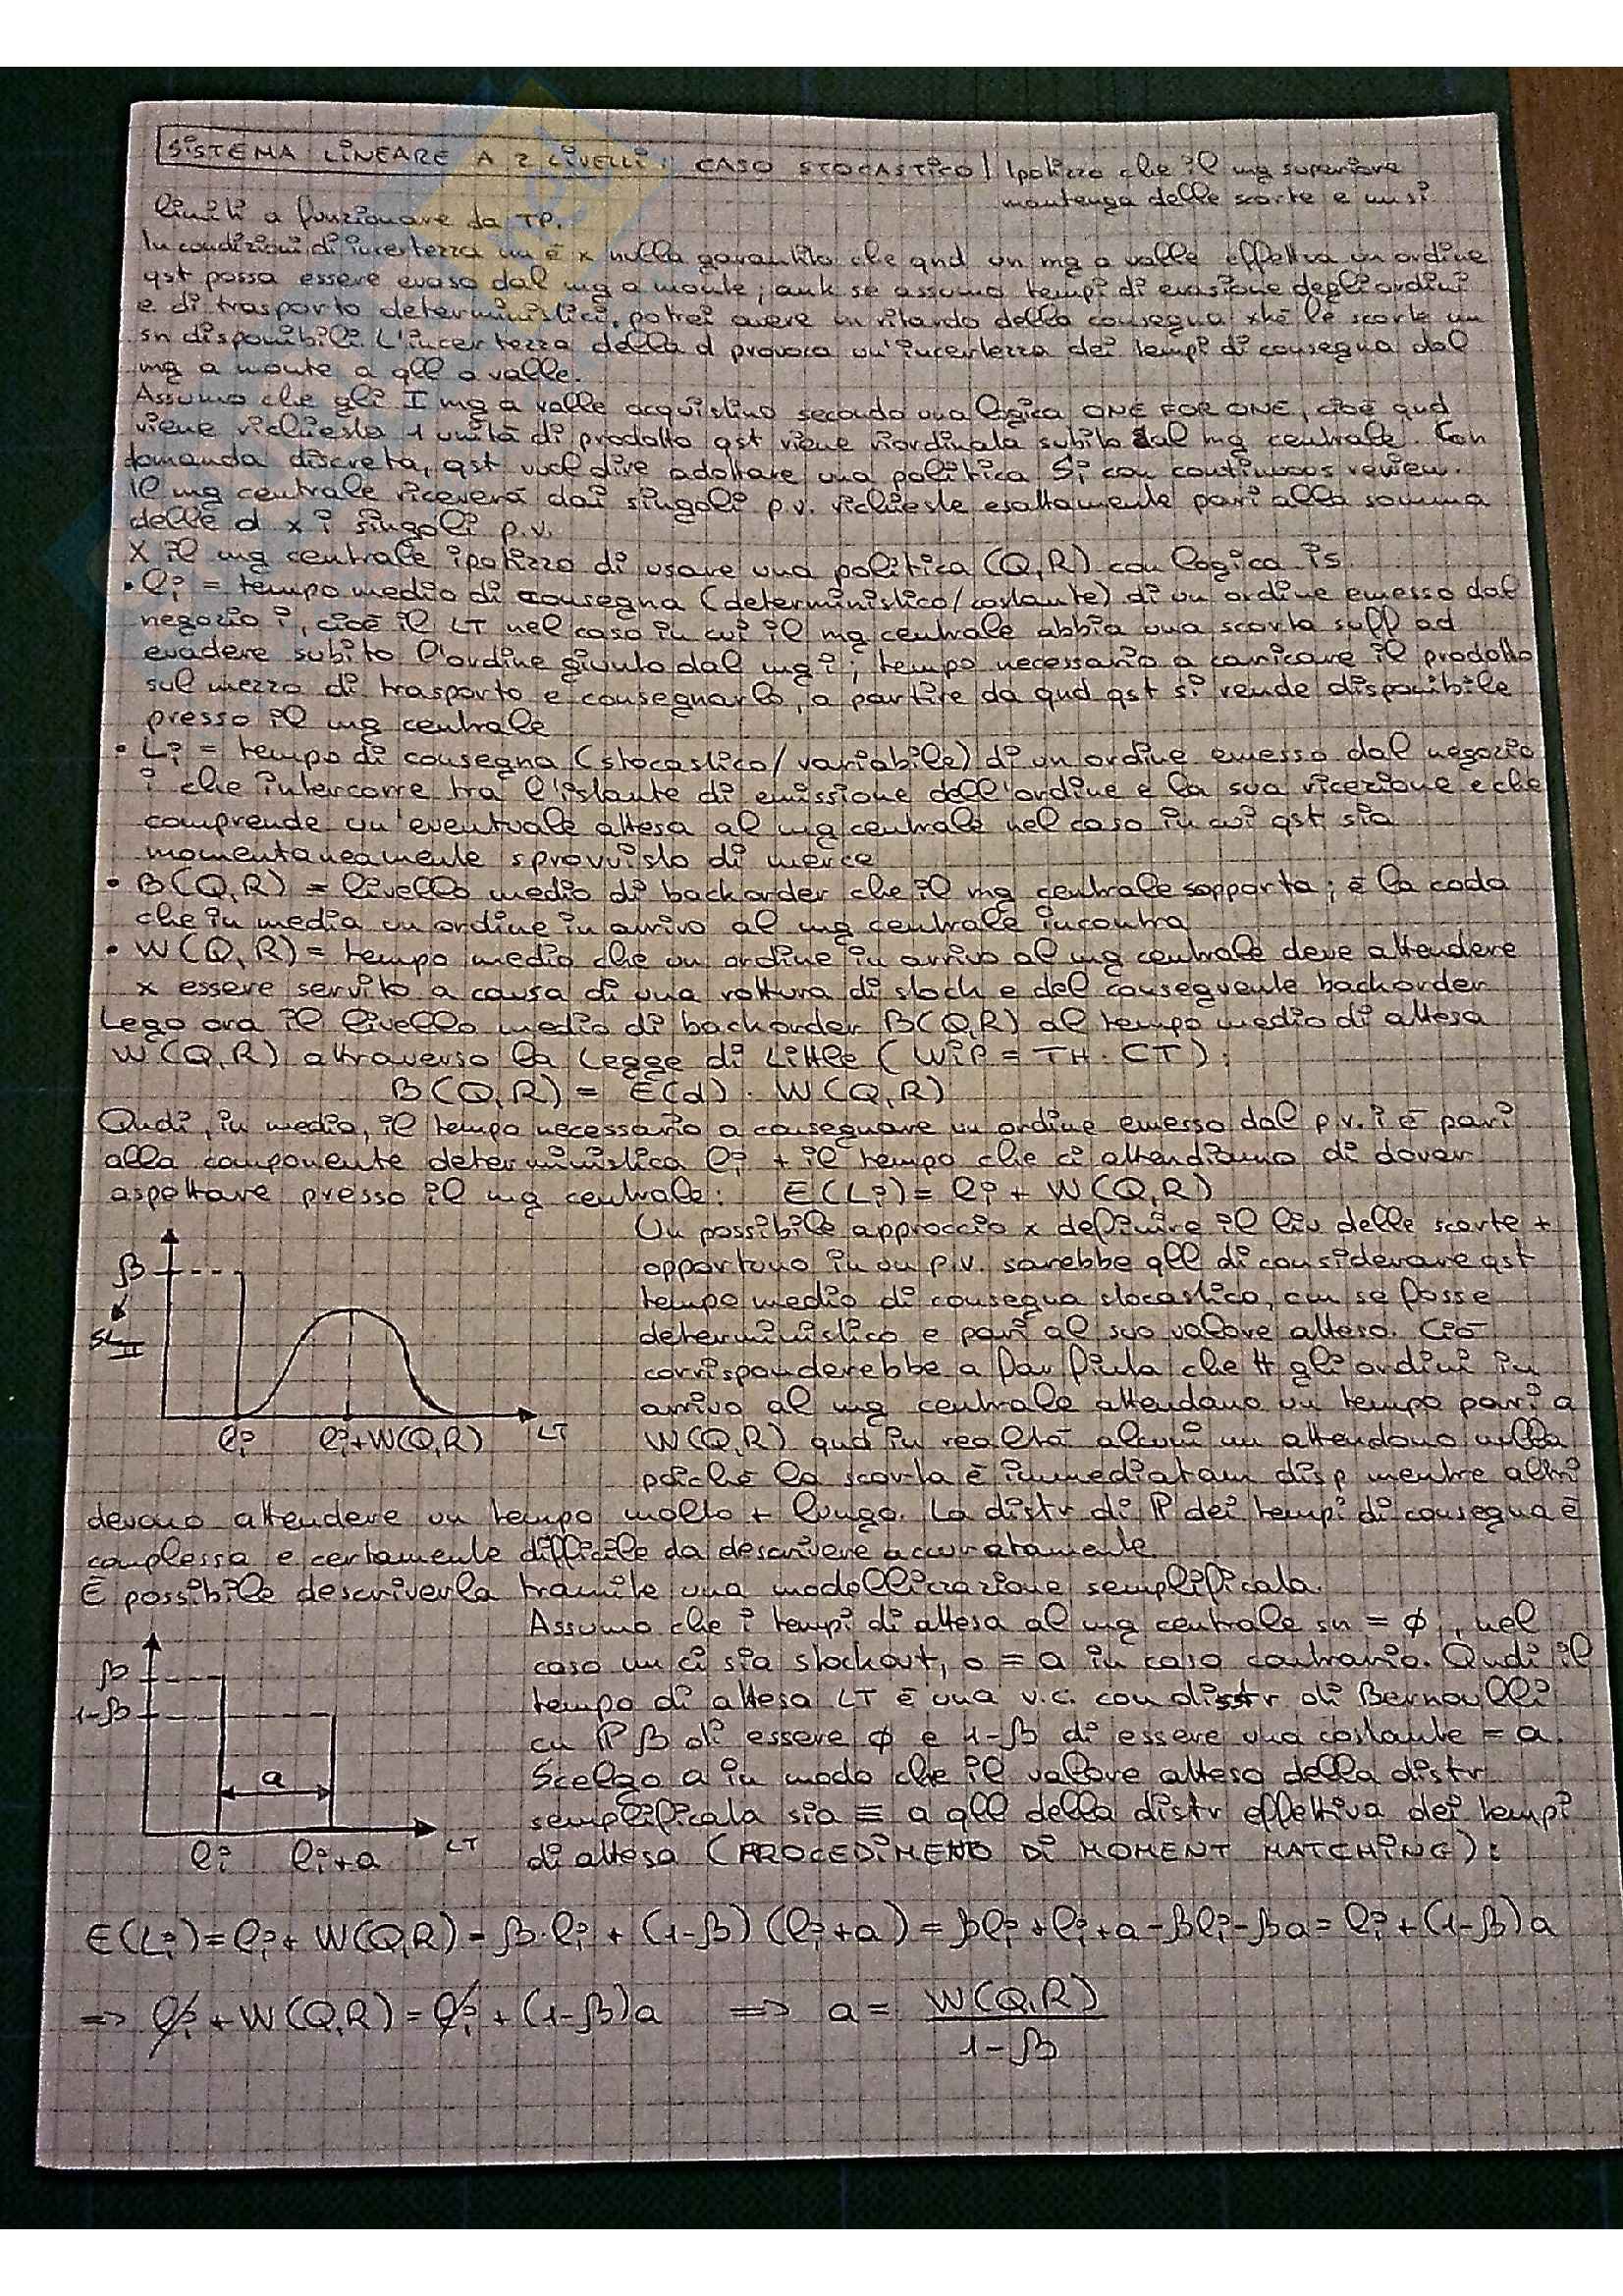 SISTEMA LINEARE A 2 LIVELLI: CASO STOCASTICO | Ipotizzo che il mg superiore
mantenga delle scorte e nn si
limiti a funzionare da TP.
In condizioni di incertezza nn è x nulla garantito che qnd un mg a valle effettua un ordine
qst possa essere evaso dal mg a monte; ank se assumo tempi di evasione degli ordini
e di trasporto deterministici, potrei avere un ritardo della consegna xkè le scorte nn
sn disponibili. L'incertezza della d provoca un'incertezza dei tempi di consegna dal
mg a monte a qll a valle.
Assumo che gli I mg a valle acquistino secondo una logica ONE FOR ONE, cioè qnd
viene richiesta 1 unità di prodotto qst viene riordinata subito dal mg centrale. Con
domanda discreta, qst vuol dire adottare una politica Si con continuous review.
Il mg centrale riceverà dai singoli p.v. richieste esattamente pari alla somma
delle d x i singoli p.v.
X il mg centrale ipotizzo di usare una politica (Q,R) con logica IS.
• li = tempo medio di consegna (deterministico/costante) di un ordine emesso dal
negozio i, cioè il LT nel caso in cui il mg centrale abbia una scorta suff ad
evadere subito l'ordine giunto dal mg i; tempo necessario a caricare il prodotto
sul mezzo di trasporto e consegnarlo, a partire da qnd qst si rende disponibile
presso il mg centrale
• Li = tempo di consegna (stocastico/variabile) di un ordine emesso dal negozio
i che intercorre tra l'istante di emissione dell'ordine e la sua ricezione e che
comprende un'eventuale attesa al mg centrale nel caso in cui qst sia
momentaneamente sprovvisto di merce
• B(Q,R) = livello medio di backorder che il mg centrale sopporta; è la coda
che in media un ordine in arrivo al mg centrale incontra
• W(Q,R) = tempo medio che un ordine in arrivo al mg centrale deve attendere
x essere servito a causa di una rottura di stock e del conseguente backorder
Lego ora il livello medio di backorder B(Q,R) al tempo medio di attesa
W(Q,R) attraverso la Legge di Little (WIP = TH · CT):
B(Q,R) = E(d) · W(Q,R)
Qndi, in media, il tempo necessario a consegnare un ordine emesso dal p.v. i è pari
alla componente deterministica li + il tempo che ci attendiamo di dover
aspettare presso il mg centrale: E(Li) = li + W(Q,R)
Un possibile approccio x definire il liv delle scorte +
opportuno in un p.v. sarebbe qll di considerare qst
tempo medio di consegna stocastico, cm se fosse
deterministico e pari al suo valore atteso. Ciò
corrisponderebbe a far finta che tt gli ordini in
arrivo al mg centrale attendano un tempo pari a
W(Q,R) qnd in realtà alcuni nn attendono nulla
poichè la scorta è immediatam disp mentre altri
β
SL II
li li+W(Q,R) LT
devono attendere un tempo molto + lungo. La distr di P dei tempi di consegna è
complessa e certamente difficile da descrivere accuratamente.
È possibile descriverla tramite una modellizzazione semplificata.
Assumo che i tempi di attesa al mg centrale sn = ϕ, nel
caso nn ci sia stockout, o = a in caso contrario. Qndi il
tempo di attesa LT è una v.c. con distr di Bernoulli
cn P β di essere ϕ e 1-β di essere una costante = a.
Scelgo a in modo che il valore atteso della distr
semplificata sia ≡ a qll della distr effettiva dei tempi
di attesa (PROCEDIMENTO DI MOMENT MATCHING):
β
1-β
a
li li+a LT
E(Li) = li + W(Q,R) = β·li + (1-β)(li+a) = βli + li + a - βli - βa = li + (1-β)a
=> li + W(Q,R) = li + (1-β)a => a = W(Q,R)
1-β